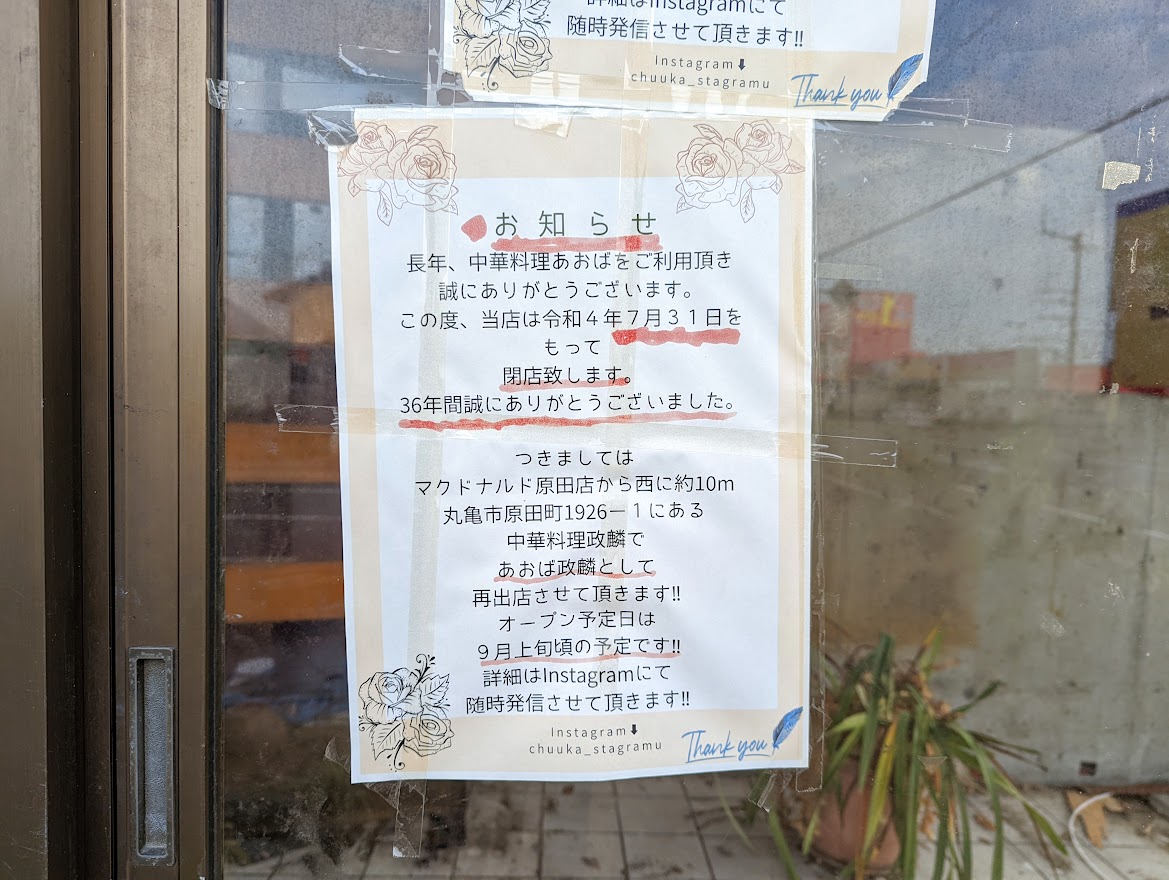 詳細はInstagramにて
随時発信させて頂きます!!
Instagram⬇
chuuka_stagramu
Thank you
お知らせ
長年、中華料理あおばをご利用頂き
誠にありがとうございます。
この度、当店は令和４年７月３１日を
もって
閉店致します。
36年間誠にありがとうございました。
つきましては
マクドナルド原田店から西に約10m
丸亀市原田町1926－１にある
中華料理政麟で
あおば政麟として
再出店させて頂きます!!
オープン予定日は
９月上旬頃の予定です!!
詳細はInstagramにて
随時発信させて頂きます!!
Instagram⬇
chuuka_stagramu
Thank you